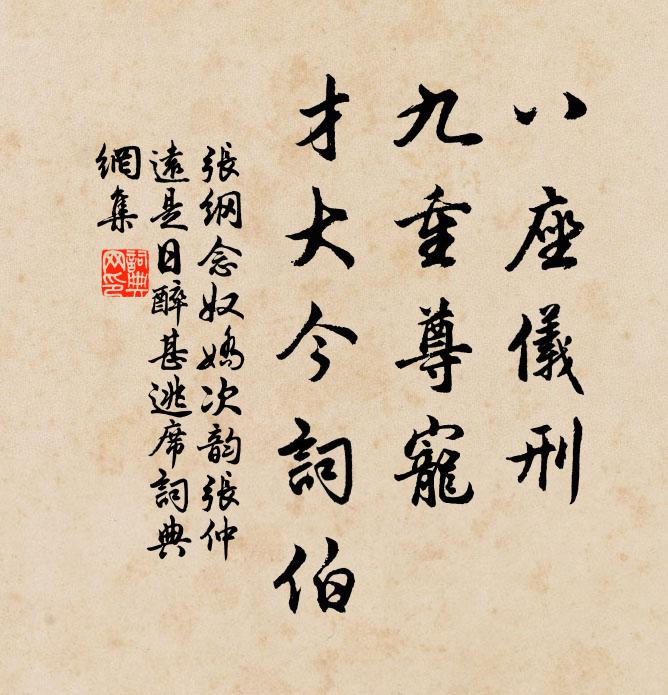 八座儀刑
九重尊寵
才大今詞伯
張綱念奴嬌次韵張仲
遠是日醉甚逃席詞典
網集
詞典
网印